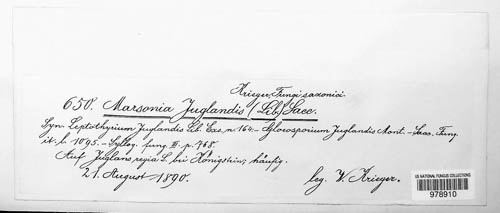 Krieger, Fungi saxonici
650. Marsonia Juglandis (Lib.) Sacc.
Syn. Leptothyrium Juglandis Lib. Exs. n. 164. – Gloeosporium Juglandis Mont. – Sacc. Fung.
it. t. 1095. – Syllog. fung. III. p. 768.
Auf Juglans regia L. bei Königstein, häufig.
21. August 1890.
leg. W. Krieger.
US NATIONAL FUNGUS COLLECTIONS
978910